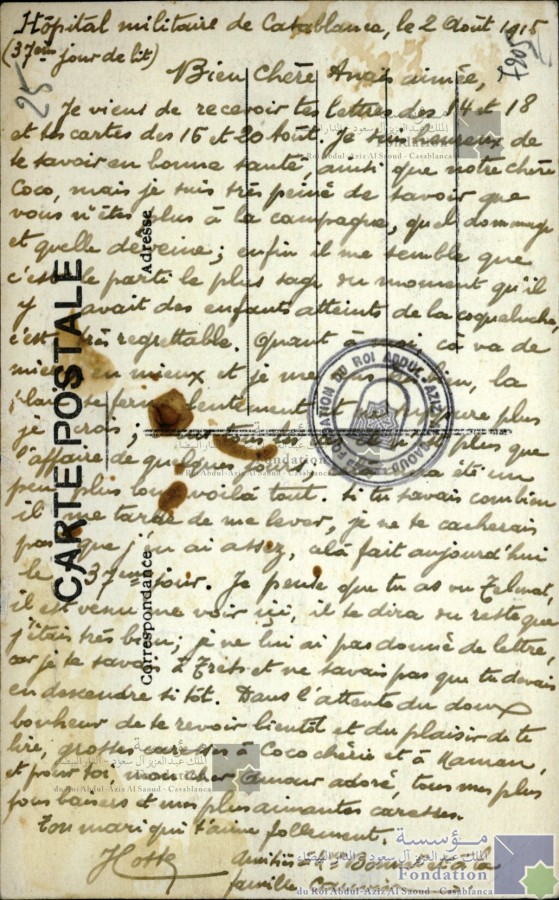 Hôpital militaire de Casablanca, le 2 Août 1915
(37ème jour de lit)
25
5067
Bien Chère Anaïs aimée,
Je viens de recevoir tes lettres des 14 et 18
et tes cartes des 15 et 20 Août. Je suis heureux de
te savoir en bonne santé, ainsi que notre chère
Coco, mais je suis très peiné de savoir que
vous n'êtes plus à la campagne, quel dommage
et quelle déveine; enfin il me semble que
c'est le parti le plus sage du moment qu'il
y avait des enfants atteints de la coqueluche,
c'est très regrettable. Quant à moi, ça va de
mieux en mieux et je me la
plaie se ferme lentement et ne plus
je crois; plus que
l'affaire de quelques jours, été un
peu plus long voilà tout. Si tu savais combien
il me tarde de me lever, je ne te cacherais
pas que j'en ai assez, cela fait aujourd'hui
le 37ème jour. Je pense que tu as vu
il est venu me voir ici, il te dira du reste que
j'étais très bien; je ne lui ai pas donné de lettre,
car je te savais à Trets et ne savais pas que tu devais
en descendre si tôt. Dans l'attente du doux
bonheur de te revoir bientôt et du plaisir de te
lire, grosses caresses à Coco chérie et à Maman,
et pour toi, mon cher amour adoré, tous mes plus
fous baisers et mes plus aimantes caresses.
Ton mari qui t'aime follement.
Amitiés à et à la
famille
CARTE POSTALE
Correspondance
Adresse
FONDATION DU ROI ABDUL AZIZ AL SAOUD
مؤسسة
الملك عبد العزيز آل سعود - الدار البيضاء
Fondation
du Roi Abdul-Aziz Al Saoud - Casablanca